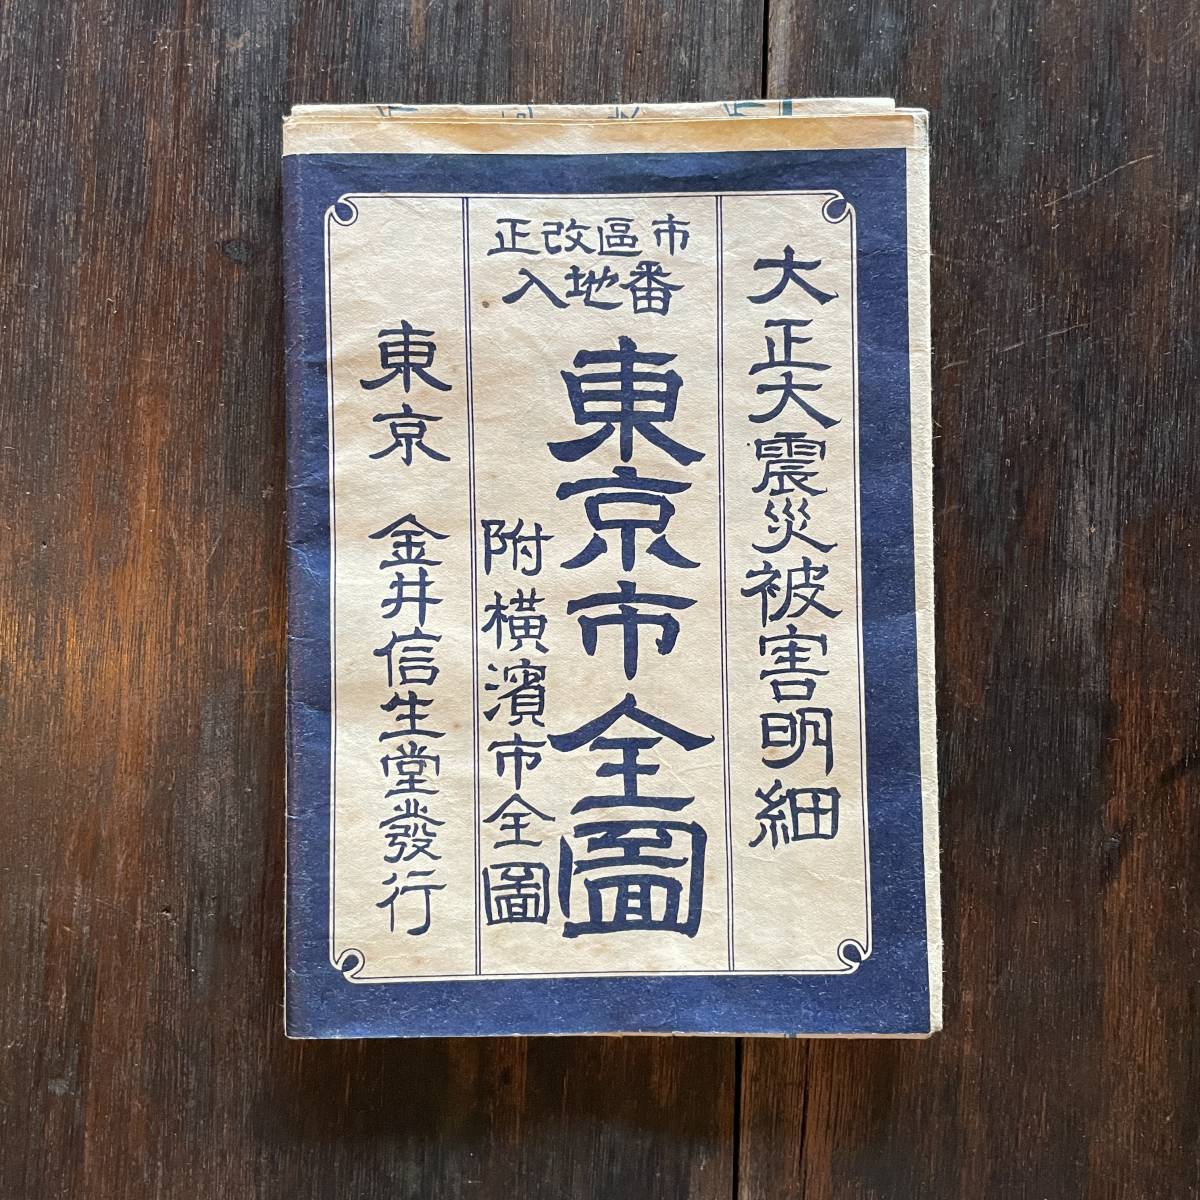 大正大震災被害明細
市區改正
番地入
東京市全圖
附橫濱市全圖
東京 金井信生堂發行